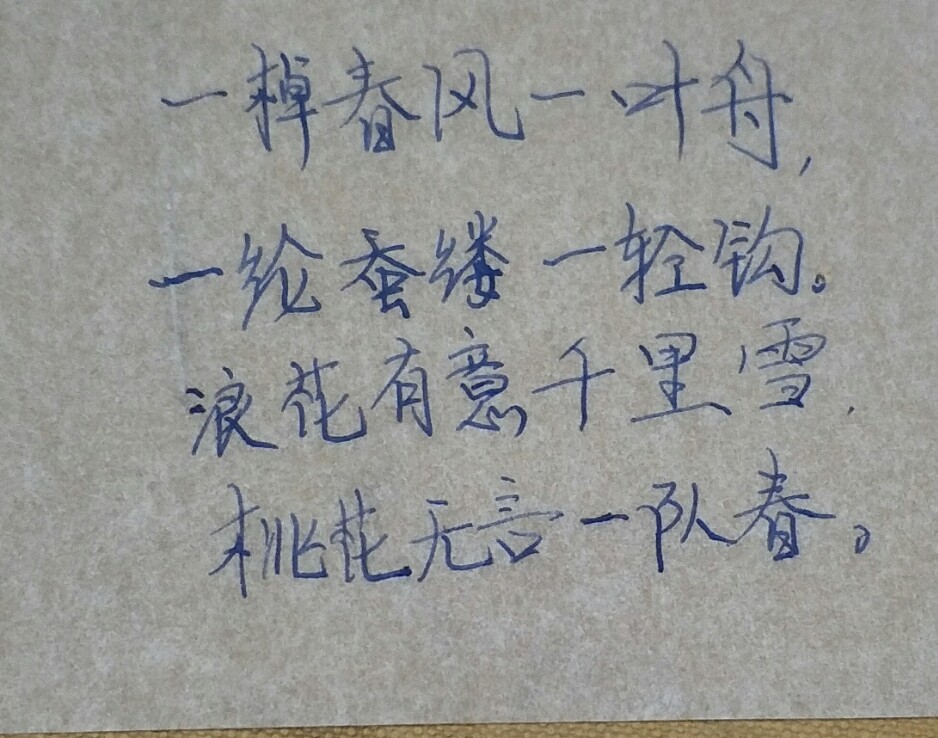 一棹春风一叶舟,
一纶蚕缕一轻钩。
浪花有意千里雪,
桃花无言一队春。